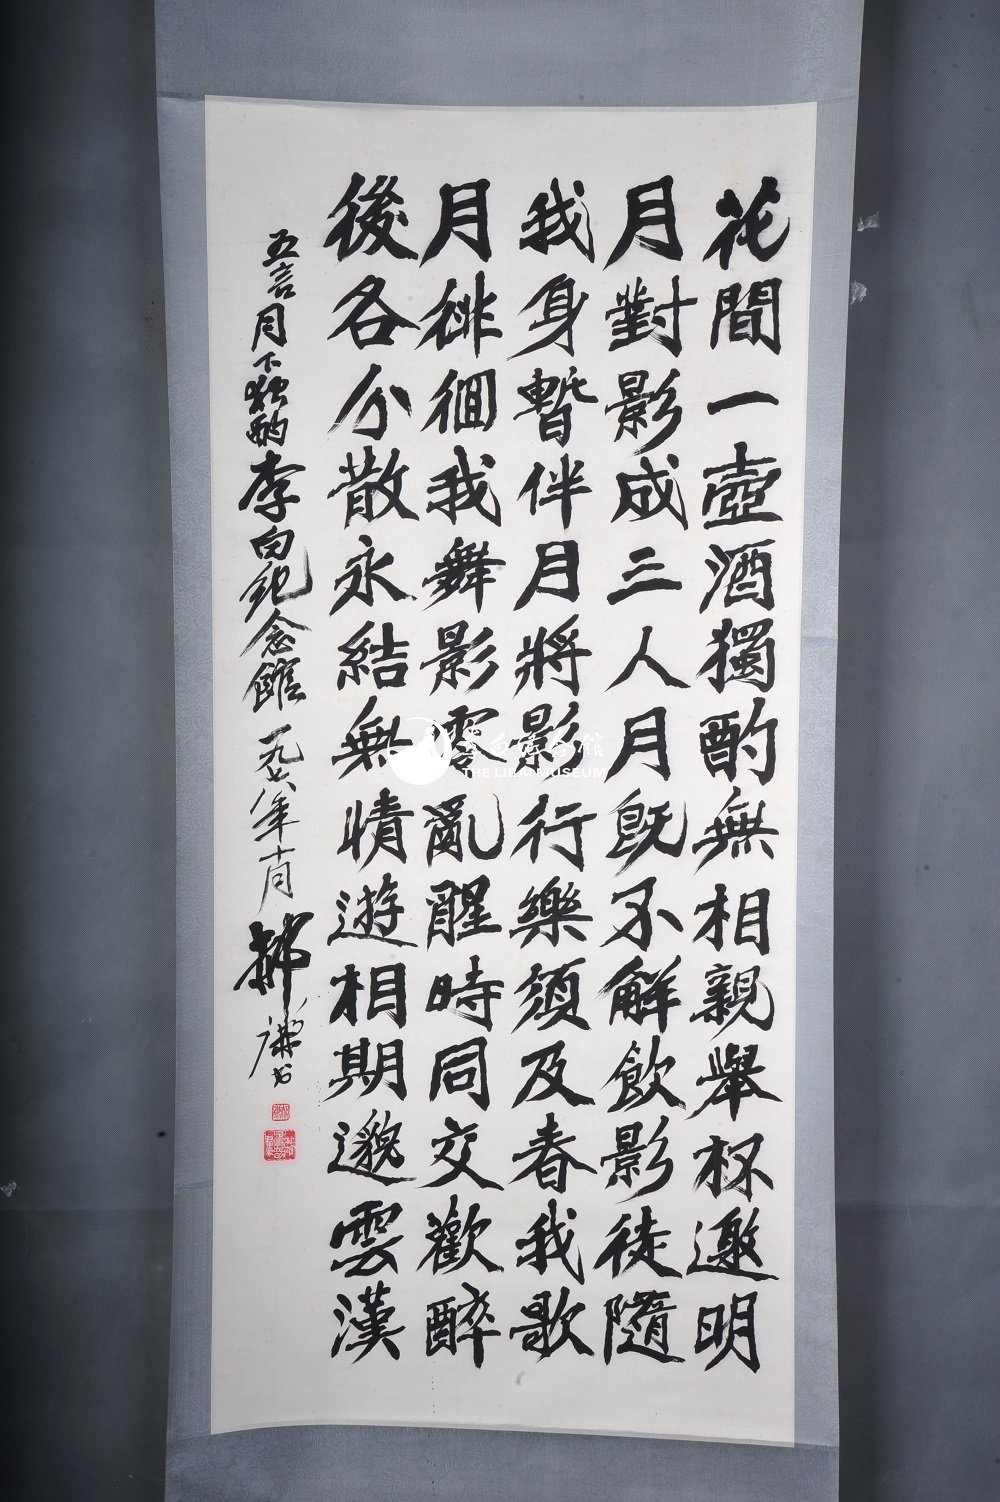 花間一壺酒獨酌無相親舉杯邀明
月對影成三人月既不解飲影徒隨
我身暫伴月將影行樂須及春我歌
月徘徊我舞影零亂醒時同交歡醉
後各分散永結無情遊相期邈雲漢
五言月下独酌李白纪念館一九七六年十月 書
李白纪念馆
THE LIBAI MUSEUM